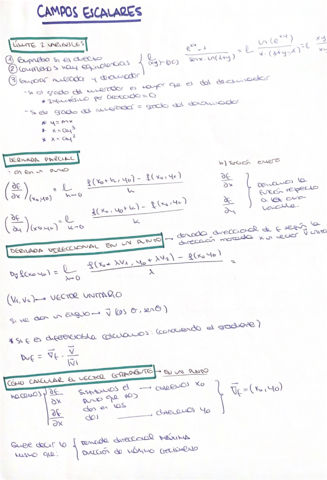 CAMPOS ESCALARES
LÍMITE 2 VARIABLES
① Comprobar si es directo
② Comprobar si hay equivalencias
③ Comparar numerador y denominador
- Si el grado del numerador es mayor que el del denominador
- Si el grado del numerador = grado del denominador
* y = mx
* x = ay²
DERIVADA PARCIAL
- a) en un punto
(∂f/∂x)(x₀,y₀) = ℓ h→0 f(x₀+h, y₀) − f(x₀,y₀) / h
(∂f/∂y)(x₀,y₀) = ℓ k→0 f(x₀, y₀+k) − f(x₀,y₀) / k
b) función entera
∂f/∂x
∂f/∂y
derivamos la función respecto a esa variable.
DERIVADA DIRECCIONAL EN UN PUNTO → derivada direccional de f según la
dirección marcada x un vector v⃗ unitario
Dvf(x₀,y₀) = ℓ λ→0 f(x₀+λv₁, y₀+λv₂) − f(x₀,y₀) / λ =
(v₁,v₂) → VECTOR UNITARIO
si me dan un ángulo → v⃗ (cos θ, sen θ)
* Si f es diferenciable calculamos: (conociendo el gradiente)
Dvf = ∇⃗f · v⃗/|v⃗|
COMO CALCULAR EL VECTOR GRADIENTE → EN UN PUNTO
hacemos ∂f/∂x
∂f/∂x
sustituimos el punto que nos dan en las dos
obtenemos x₀
obtenemos y₀
∇⃗f = (x₀, y₀)
Quiere decir lo mismo que:
Derivada direccional máxima
Dirección de máximo crecimiento